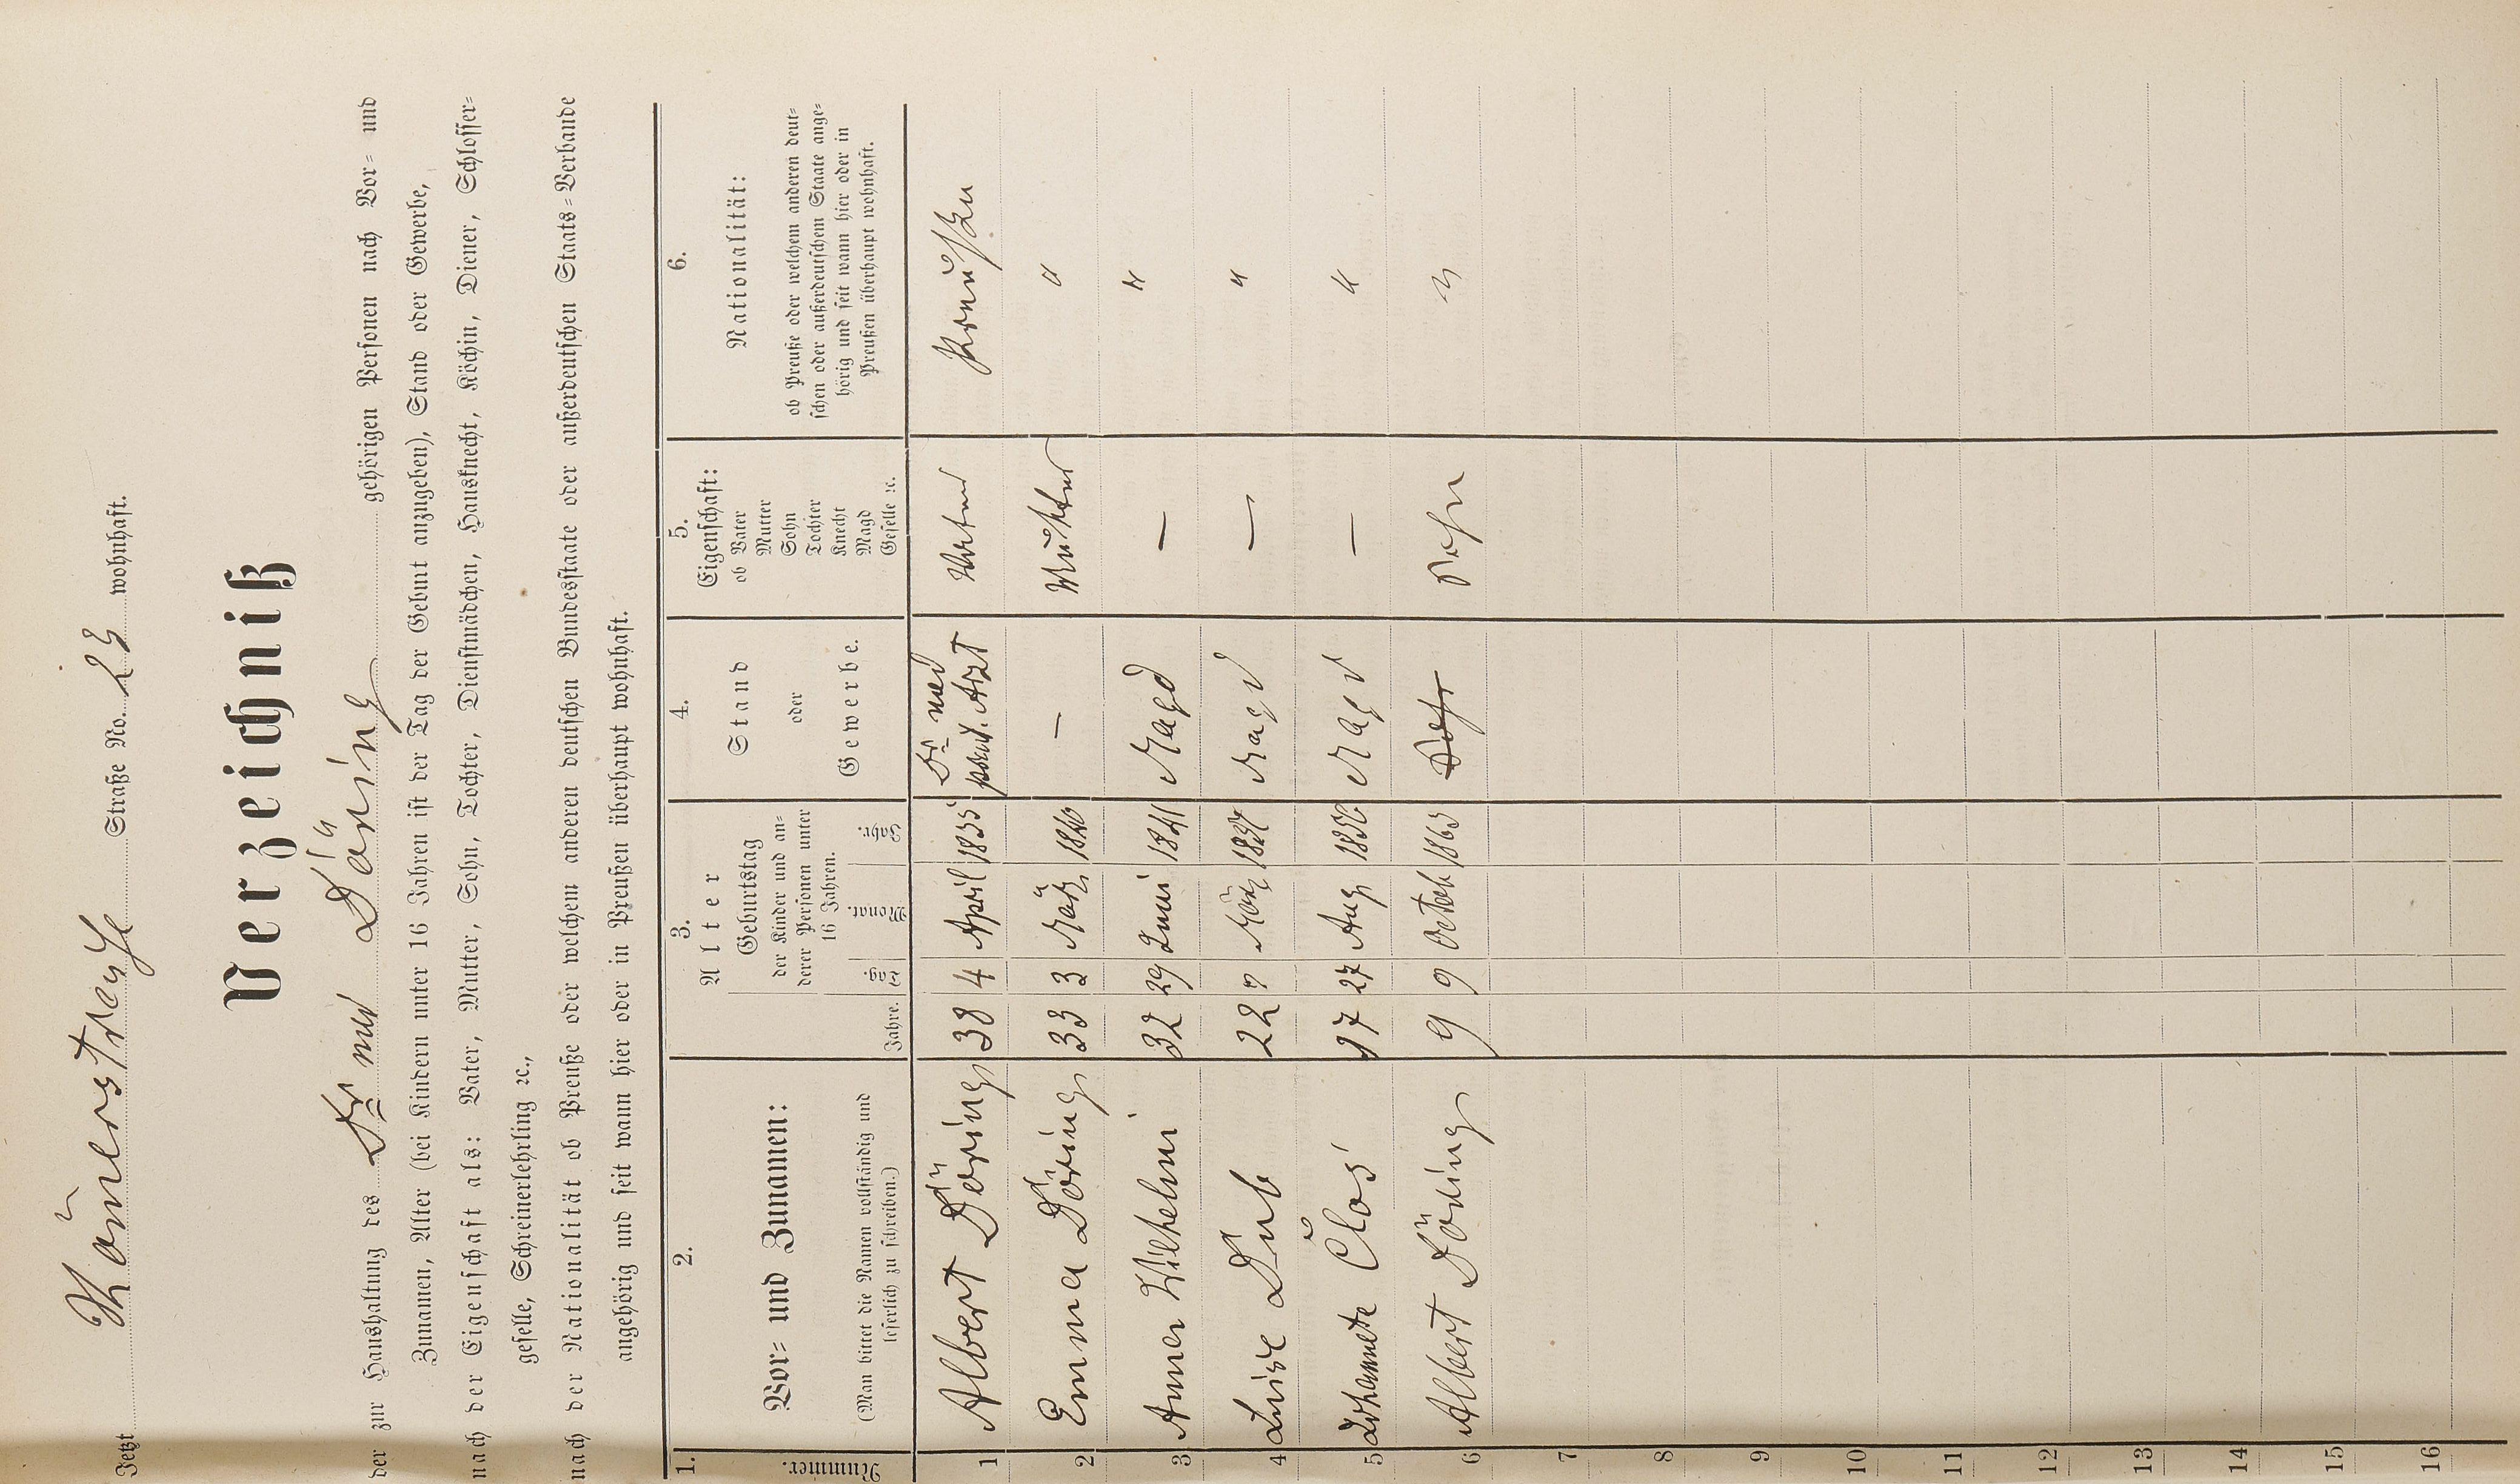 Jetzt Römerstraße Straße No. 23 wohnhaft.
Verzeichniß
der zur Haushaltung des Dr med Döring gehörigen Personen nach Vor- und
Zunamen, Alter (bei Kindern unter 16 Jahren ist der Tag der Geburt anzugeben), Stand oder Gewerbe,
nach der Eigenschaft als: Vater, Mutter, Sohn, Tochter, Dienstmädchen, Hausknecht, Köchin, Diener, Schlosser-
geselle, Schreinerlehrling ꝛc.,
nach der Nationalität ob Preuße oder welchem anderen deutschen Bundesstaate oder außerdeutschen Staats-Verbande
angehörig und seit wann hier oder in Preußen überhaupt wohnhaft.
1. 2. 3. 4. 5. 6.
Nummer.
Vor- und Zunamen:
(Man bittet die Namen vollständig und
leserlich zu schreiben.)
Alter
Jahre.
Geburtstag
der Kinder und an-
derer Personen unter
16 Jahren.
Tag. Monat. Jahr.
Stand
oder
Gewerbe.
Eigenschaft:
ob Vater
Mutter
Sohn
Tochter
Knecht
Magd
Geselle ꝛc.
Nationalität:
ob Preuße oder welchem anderen deut-
schen oder außerdeutschen Staate ange-
hörig und seit wann hier oder in
Preußen überhaupt wohnhaft.
1 Albert Döring 38 4 April 1835 Dr med prakt. Arzt Vater Preußen
2 Emma Döring 33 3 März 1840 — Mutter "
3 Anna Wilhelmi 32 29 Juni 1841 Magd — "
4 Luise 22 März Magd — "
5 17 27 Aug Magd — "
6 Albert Döring 9 9 Octob 1863 Sohn Sohn "
7
8
9
10
11
12
13
14
15
16